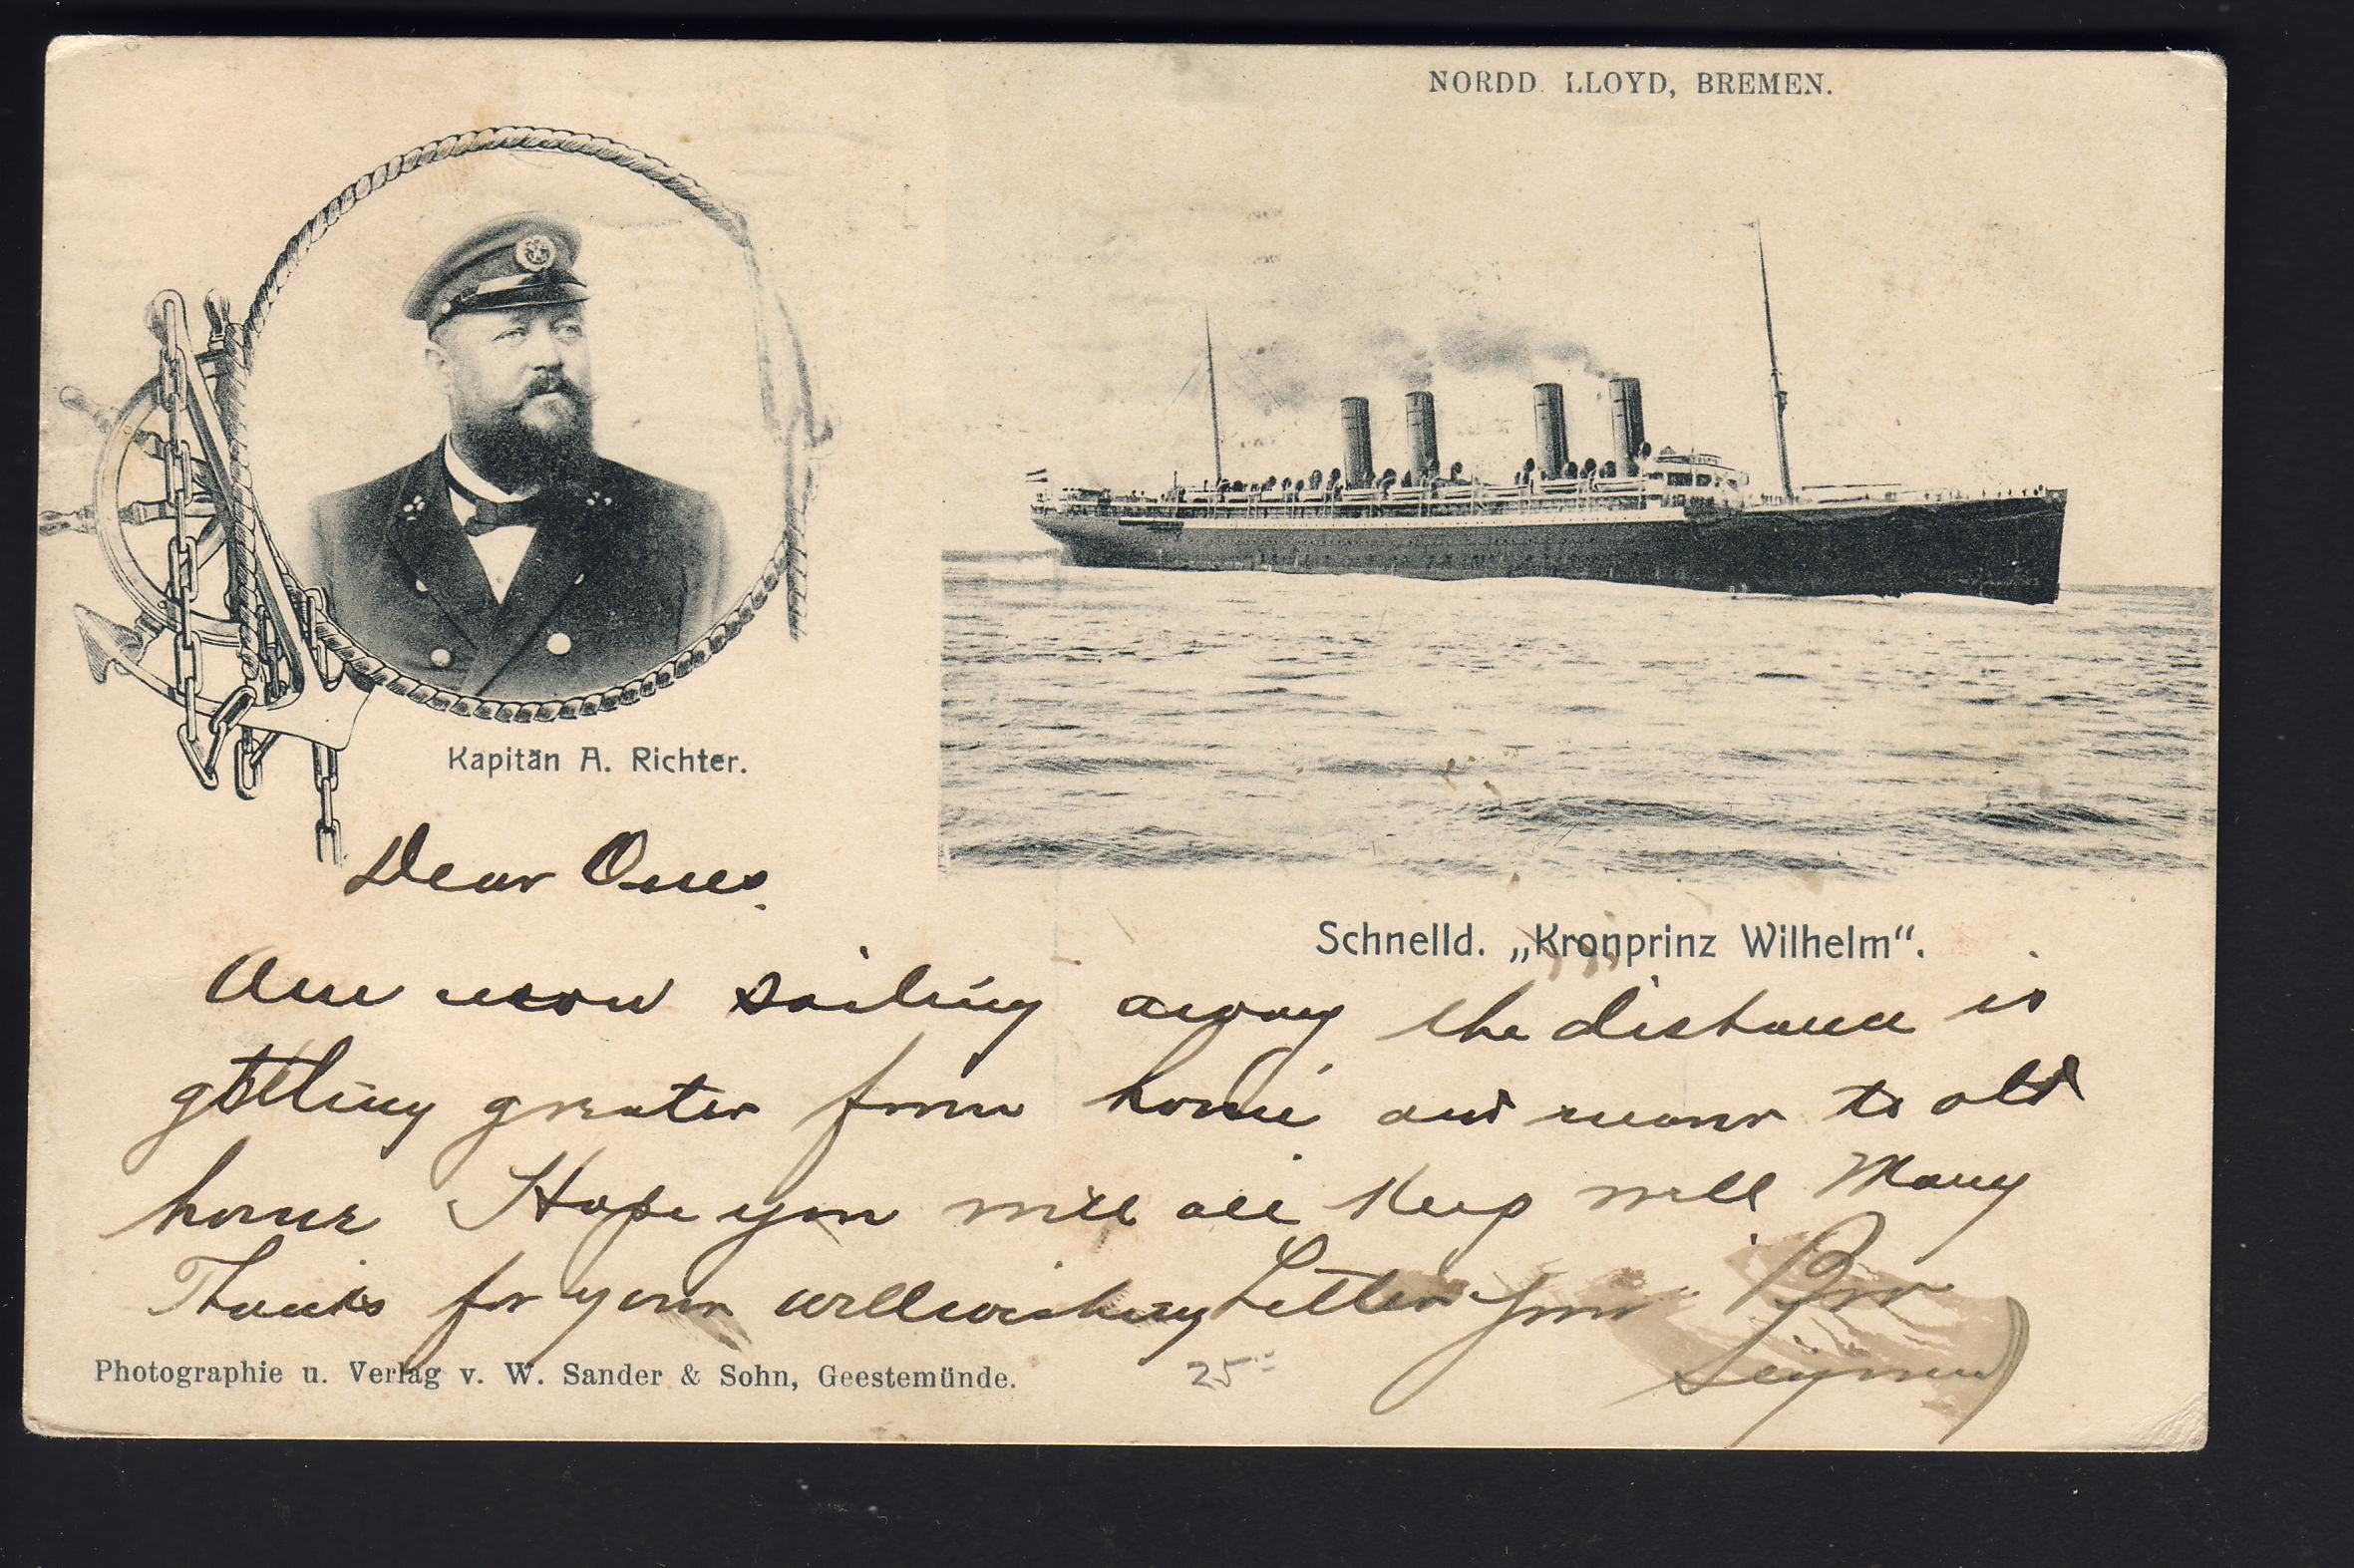 NORDD. LLOYD, BREMEN.
Kapitän A. Richter.
Schnelld. „Kronprinz Wilhelm“.
Dear Ones.
Am now sailing away the distance is
getting greater from home and near to old
home Hope you will all Keep well Many
Thanks for your wellwishing Letter from Bro
Photographie u. Verlag v. W. Sander & Sohn, Geestemünde.
25